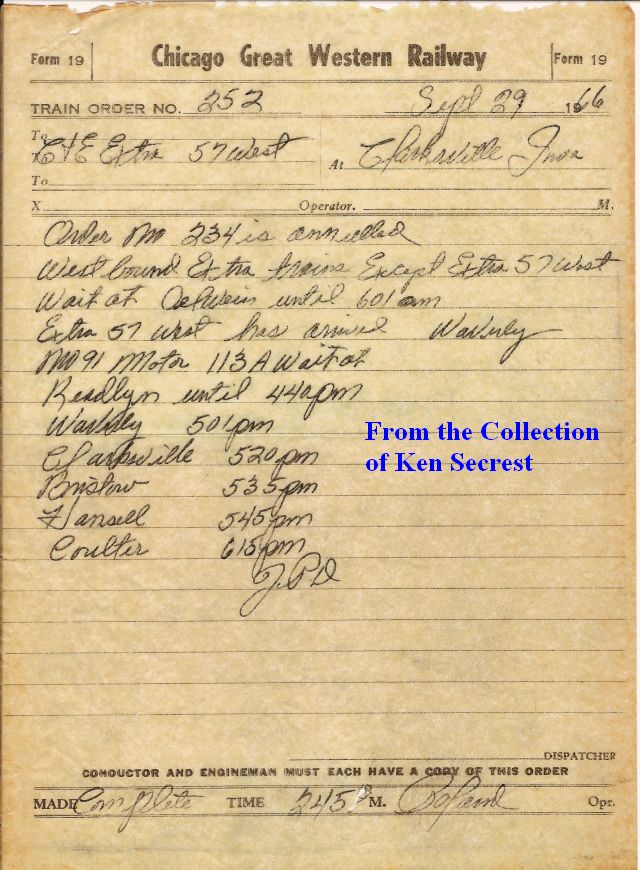 Form 19 Chicago Great Western Railway Form 19
TRAIN ORDER NO. 252 Sept 29 1966
To
To C&E Extra 57 West At Clarksville Iowa
To
X Operator. M.
Order No 234 is annulled
West bound Extra trains Except Extra 57 West
Wait at Oelwein until 601 am
Extra 57 West has arrived Waverly
No 91 Motor 113A Wait at
Readlyn until 440pm
Waverly 501pm
Clarksville 520pm
Bristow 535pm
Hansell 545pm
Coulter 615pm
From the Collection
of Ken Secrest
DISPATCHER
CONDUCTOR AND ENGINEMAN MUST EACH HAVE A COPY OF THIS ORDER
MADE Complete TIME 245 P M. Opr.